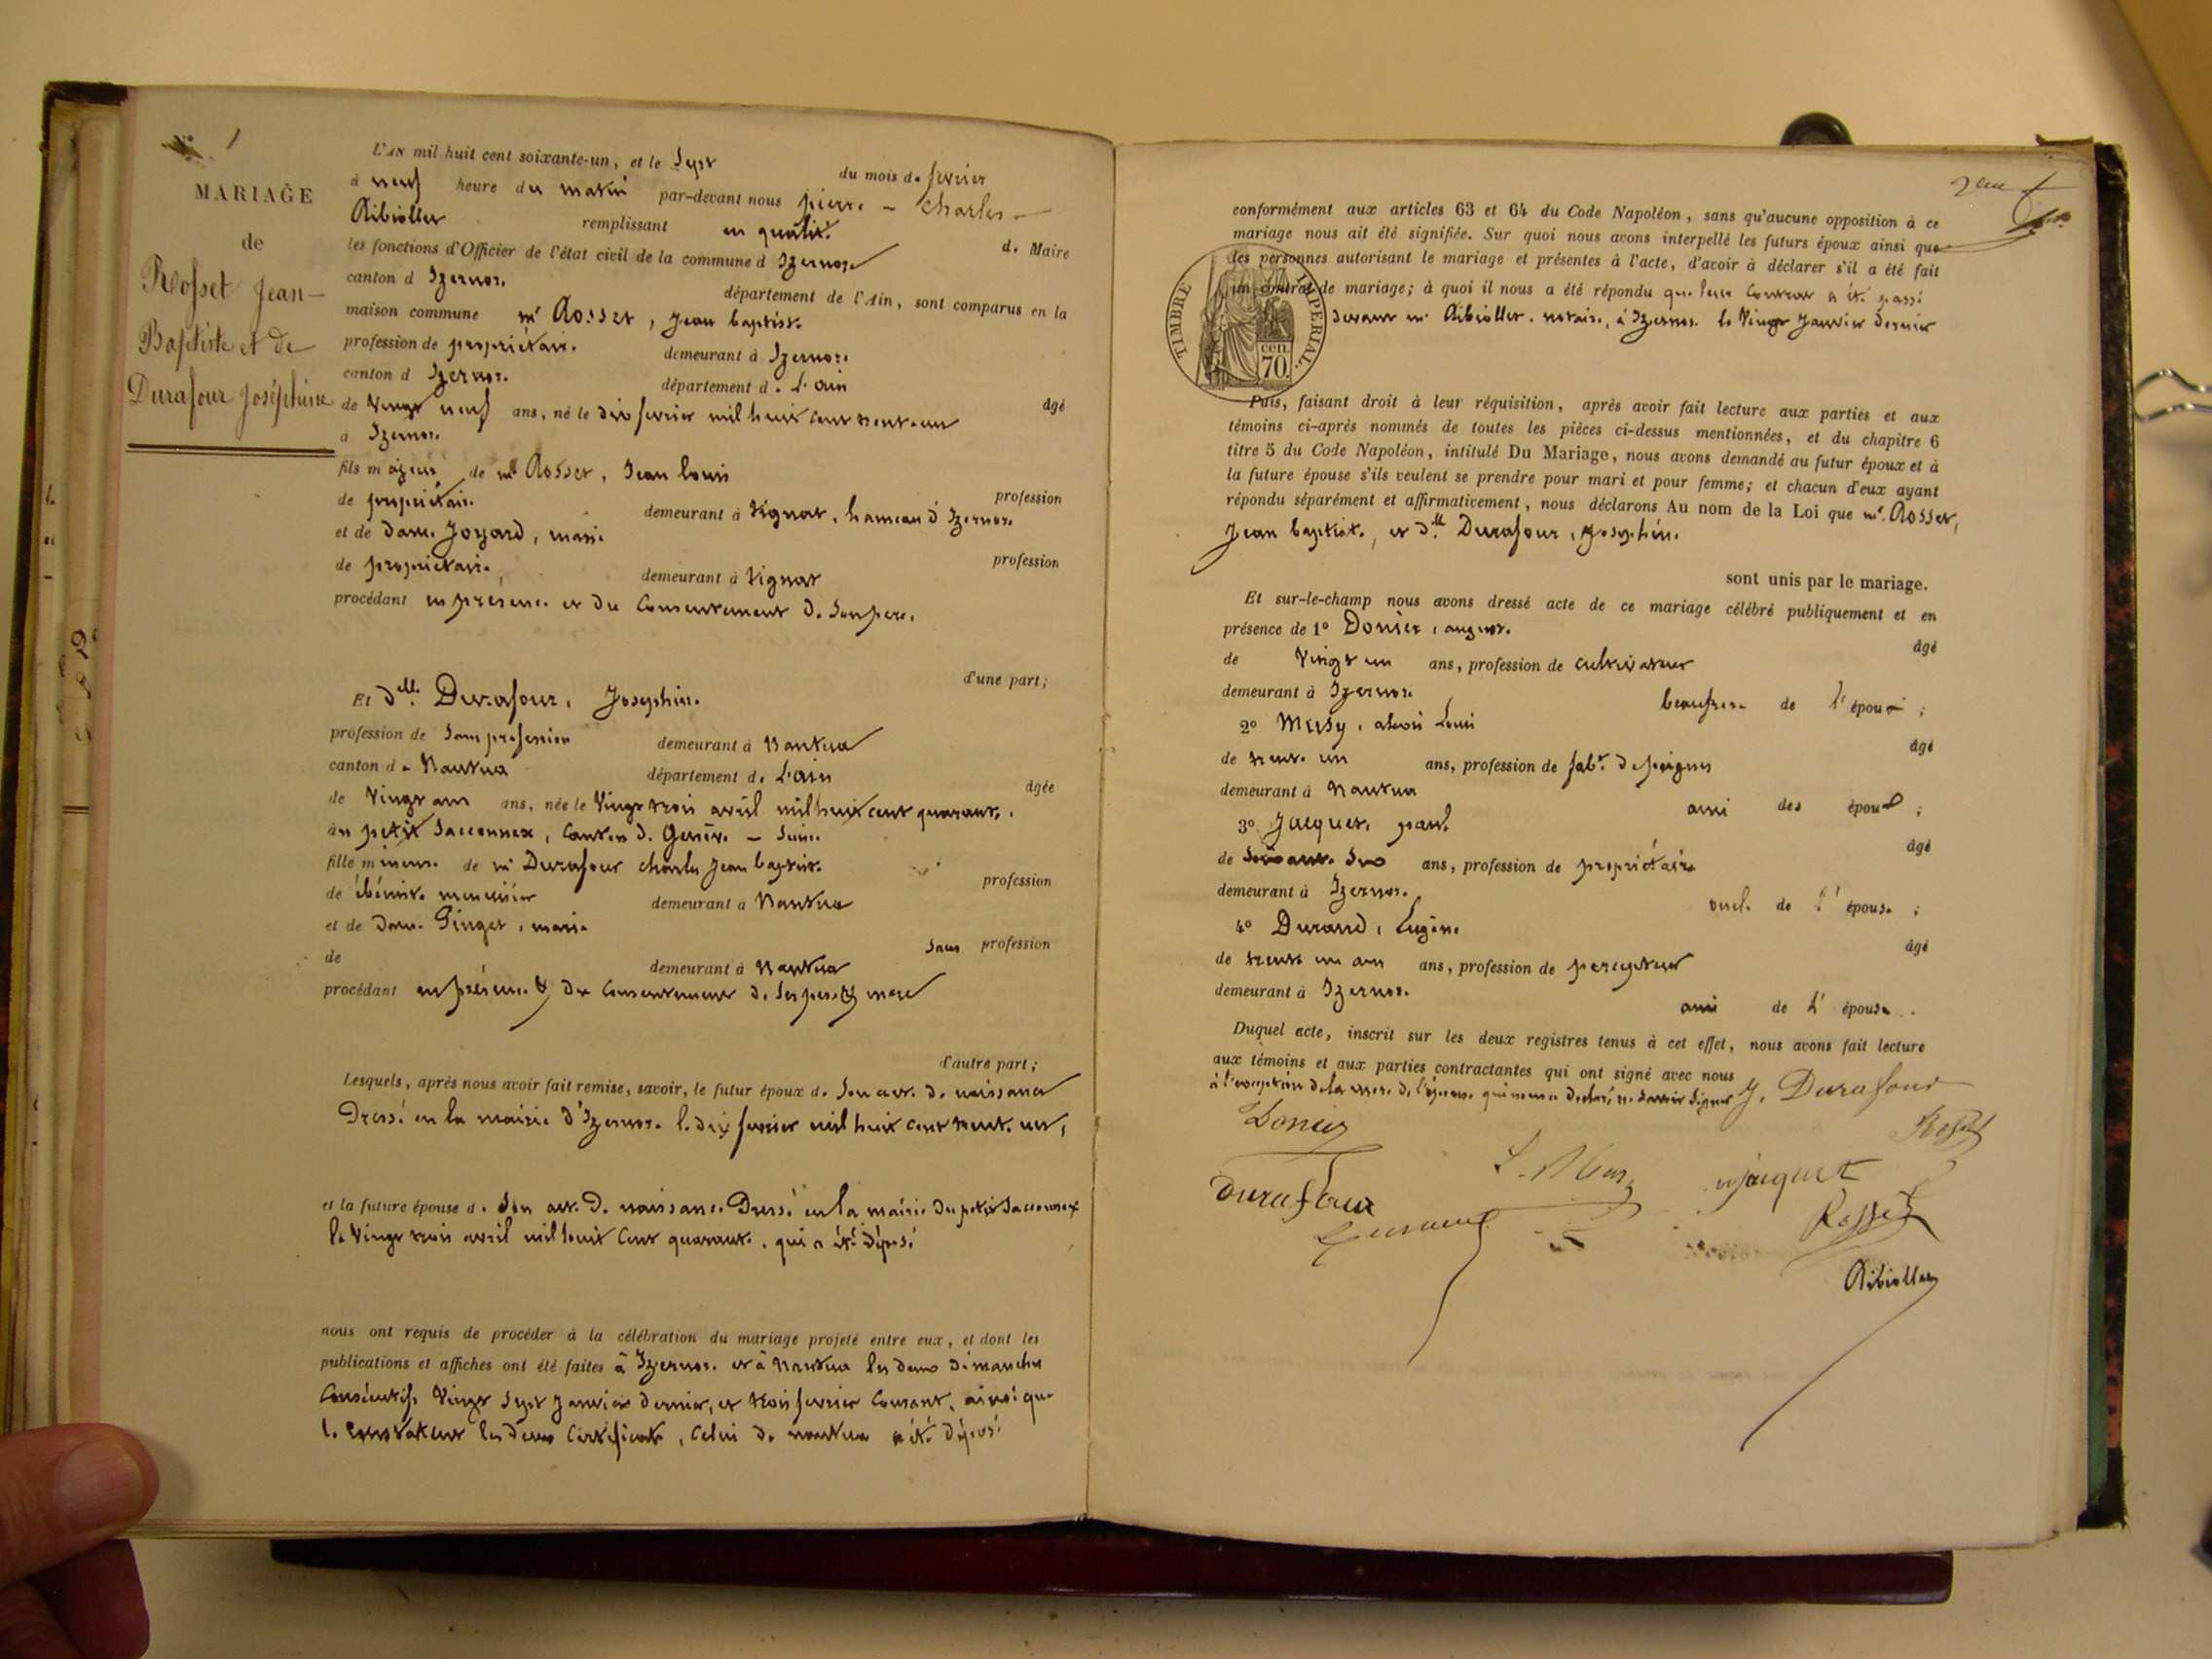 N° 1
MARIAGE
de
Rosset Jean-
Baptiste et de
Durafour Joséphine
L'AN mil huit cent soixante-un, et le sept du mois de fevrier
à neuf heure du matin par-devant nous pierre - Charles -
Ribiollet remplissant en qualité de Maire
les fonctions d'Officier de l'état civil de la commune d Izernore
canton d Izernore département de l'Ain, sont comparus en la
maison commune mr Rosset, Jean baptiste
profession de propriétaire demeurant à Izernore
canton d Izernore département de l'ain âgé
de Vingt neuf ans, né le dix fevrier mil huit cent trente un
à Izernore
fils majeur de mr Rosset, Jean louis profession
de propriétaire demeurant à Tignat, hameau d'Izernore
et de dame Joyard, marie profession
de propriétaire, demeurant à Tignat
procédant en présence et du Consentement de son pere,
d'une part;
Et delle Durafour, Josephine
profession de Sans profession demeurant à Nantua
canton de Nantua département de L'ain âgée
de Vingt ans ans, née le Vingt trois avril mil huit cent quarante,
au petit Sacconnex, Canton de Genève - Suisse
fille mineure de mr Durafour Charles Jean baptiste profession
de ébéniste menuisier demeurant à Nantua
et de dame Pinget, marie sans profession
de demeurant à Nantua
procédant en présence & du Consentement de ses pere & mere
d'autre part;
Lesquels, après nous avoir fait remise, savoir, le futur époux de Son acte de naissance
Dressé en la mairie d'Izernore le dix fevrier mil huit cent trente un,
et la future épouse de Son acte de naissance Dressé en la mairie du petit Sacconnex
le Vingt trois avril mil huit cent quarante, qui a été déposé
nous ont requis de procéder à la célébration du mariage projeté entre eux, et dont les
publications et affiches ont été faites à Izernore et à Nantua les deux dimanches
Consécutifs Vingt sept Janvier dernier, et trois fevrier Courant, ainsi que
le Constatent les deux Certificats, Celui de nantua a été déposé
conformément aux articles 63 et 64 du Code Napoléon, sans qu'aucune opposition à ce
mariage nous ait été signifiée. Sur quoi nous avons interpellé les futurs époux ainsi que
les personnes autorisant le mariage et présentes à l'acte, d'avoir à déclarer s'il a été fait
un contrat de mariage; à quoi il nous a été répondu que leur Contrat a été passé
devant mr Ribiollet, notaire, à Izernore le Vingt Janvier dernier
TIMBRE IMPERIAL.
70. cen.
Puis, faisant droit à leur réquisition, après avoir fait lecture aux parties et aux
témoins ci-après nommés de toutes les pièces ci-dessus mentionnées, et du chapitre 6
titre 5 du Code Napoléon, intitulé Du Mariage, nous avons demandé au futur époux et à
la future épouse s'ils veulent se prendre pour mari et pour femme; et chacun d'eux ayant
répondu séparément et affirmativement, nous déclarons Au nom de la Loi que mr. Rosset,
Jean baptiste, et dlle Durafour, Josephine
sont unis par le mariage.
Et sur-le-champ nous avons dressé acte de ce mariage célébré publiquement et en
présence de 1° Donier, auguste âgé
de Vingt un ans, profession de cultivateur
demeurant à Izernore beaufrere de l'époux;
2° Musy, Louis âgé
de trente un ans, profession de fabt de peignes
demeurant à Nantua ami des époux;
3° Jacquet, paul âgé
de Soixante deux ans, profession de propriétaire
demeurant à Izernore oncle de l'épouse;
4° Durand, Eugène âgé
de trente un ans ans, profession de percepteur
demeurant à Izernore ami de L'épouse.
Duquel acte, inscrit sur les deux registres tenus à cet effet, nous avons fait lecture
aux témoins et aux parties contractantes qui ont signé avec nous
à l'exception de la mere de l'épouse qui nous a declaré ne savoir signer J. Durafour
Donier Rosset
Durafour L. Musy Jacquet
Durand Rosset
Ribiollet